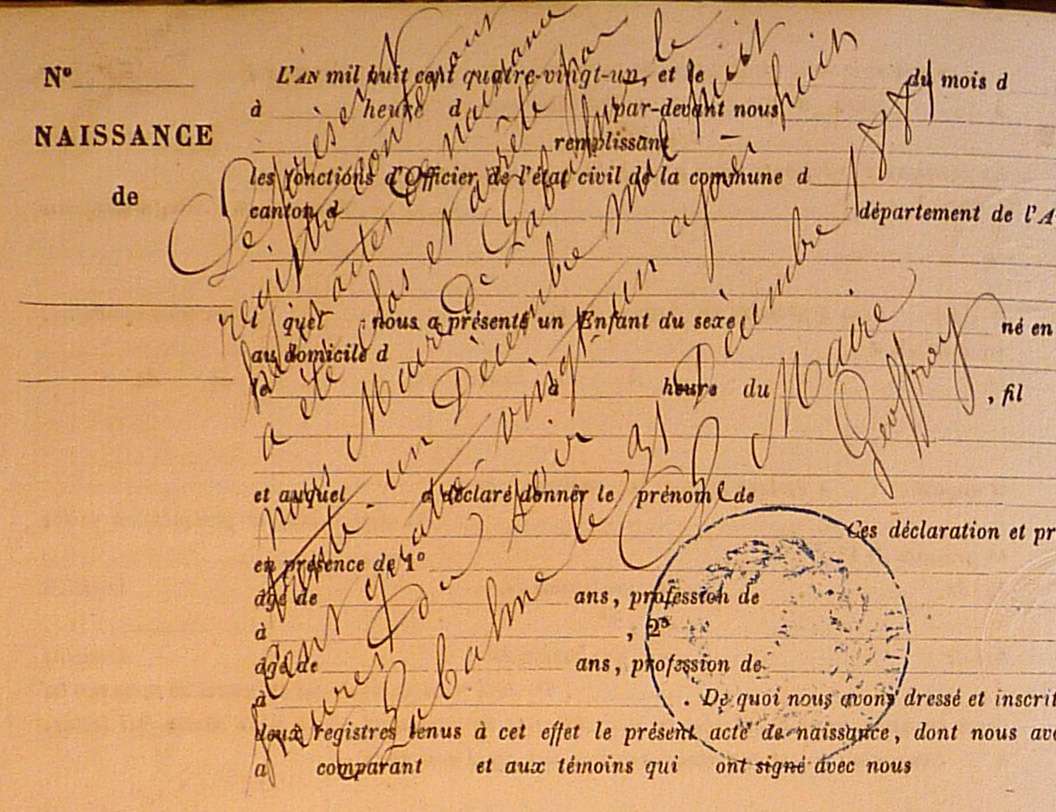 N°
NAISSANCE
de
L'AN mil huit cent quatre-vingt-un, et le du mois d
à heure d par-devant nous
remplissant
les fonctions d'Officier de l'état civil de la commune d
canton d département de l'A
l quel nous a présenté un Enfant du sexe né en
au domicile d
le à heure du , fil
et auquel a déclaré donner le prénom de
Ces déclaration et pr
en présence de 1°
âgé de ans, profession de
à , 2°
âgé de ans, profession de
à . De quoi nous avons dressé et inscrit
deux registres tenus à cet effet le présent acte de naissance, dont nous avo
a comparant et aux témoins qui ont signé avec nous
Le présent
registre contenant
huit actes de naissance
a été clos et arrêté par
nous Maire de Labalme, le
trente-un Décembre mil huit
cent quatre-vingt-un après huit
heures du soir
Labalme le 31 Décembre 1881
Le Maire
Geoffray